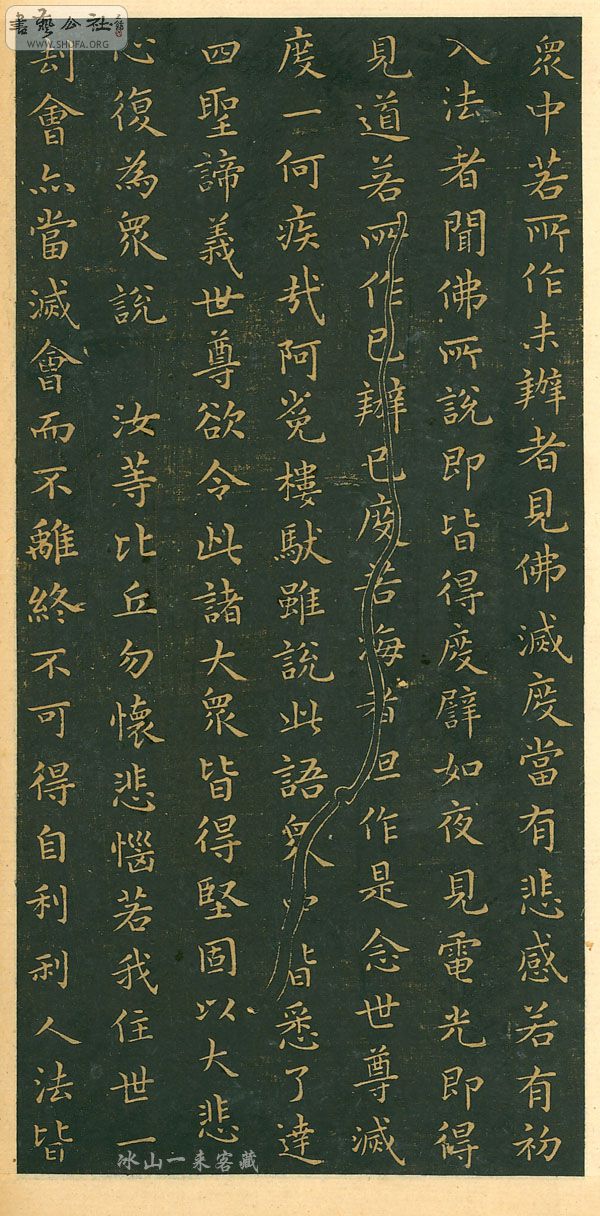 眾中若所作未辦者見佛滅度當有悲感若有初
入法者聞佛所說即皆得度譬如夜見電光即得
見道若所作已辦已度苦海者但作是念世尊滅
度一何疾哉阿㝹樓馱雖說此語眾中皆悉了達
四聖諦義世尊欲令此諸大眾皆得堅固以大悲
心復為眾說 汝等比丘勿懷悲惱若我住世一
劫會亦當滅會而不離終不可得自利利人法皆
書藝公社
WWW.SHUFA.ORG
冰山一来客藏